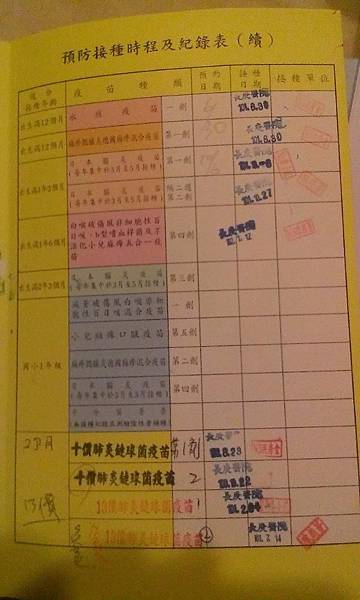 預防接種時程及紀錄表（續）
適合接種年齡 疫苗種類 預約日期 接種日期 接種單位
出生滿12個月 水痘疫苗 一劑 長庚醫院
出生滿12個月 麻疹腮腺炎德國麻疹混合疫苗 第一劑 長庚醫院
日本腦炎疫苗 第一劑
（每年集中於3月至5月接種）
出生滿1年3個月 日本腦炎疫苗 隔二週
（每年集中於3月至5月接種） 第二劑
出生滿1年6個月 白喉破傷風非細胞性百
日咳、b型嗜血桿菌及不
活化小兒麻痺五合一疫
苗
第四劑 長庚醫院
出生滿2年3個月 日本腦炎疫苗 第三劑
（每年集中於3月至5月接種）
國小1年級 減量破傷風白喉非細
胞性百日咳混合疫苗
一劑
小兒麻痺口服疫苗 第五劑
麻疹腮腺炎德國麻疹混合疫苗 第二劑
日本腦炎疫苗 第四劑
（每年集中於3月至5月接種）
卡介苗普查
（無接種紀錄且測驗陰性者補種）
2個月 十價肺炎鏈球菌疫苗 第1劑 長庚醫院
十價肺炎鏈球菌疫苗 2
13價 13價肺炎鏈球菌疫苗 1 長庚醫院
13價肺炎鏈球菌疫苗 2 長庚醫院